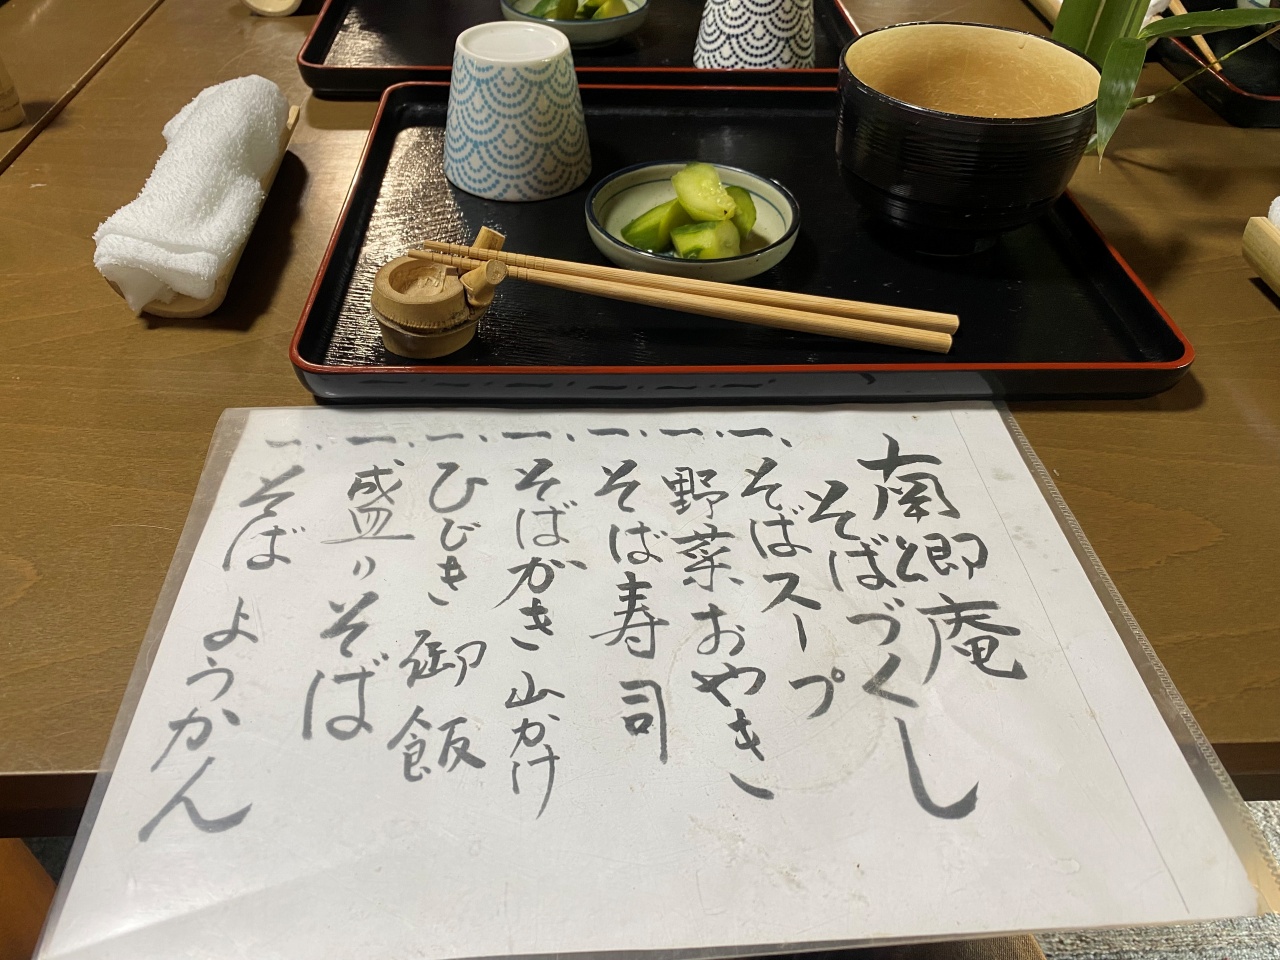 南郷庵
そばづくし
一、そばスープ
一、野菜おやき
一、そば寿司
一、そばがき山かけ
一、ひびき御飯
一、盛りそば
一、そばようかん